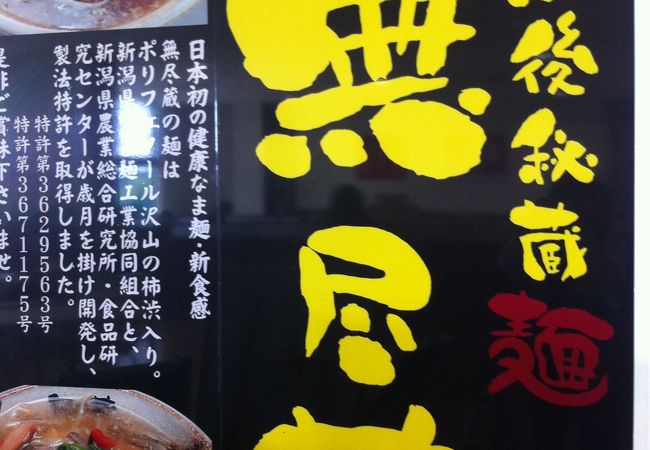 後秘蔵麺
無尽
日本初の健康なま麺・新食感
無尽蔵の麺は
ポリフェノール沢山の柿渋入り。
新潟県 麺工業協同組合と、
新潟県農業総合研究所・食品研
究センターが歳月を掛け開発し、
製法特許を取得しました。
特許第3629563号
特許第3671175号
是非ご賞味下さいませ。